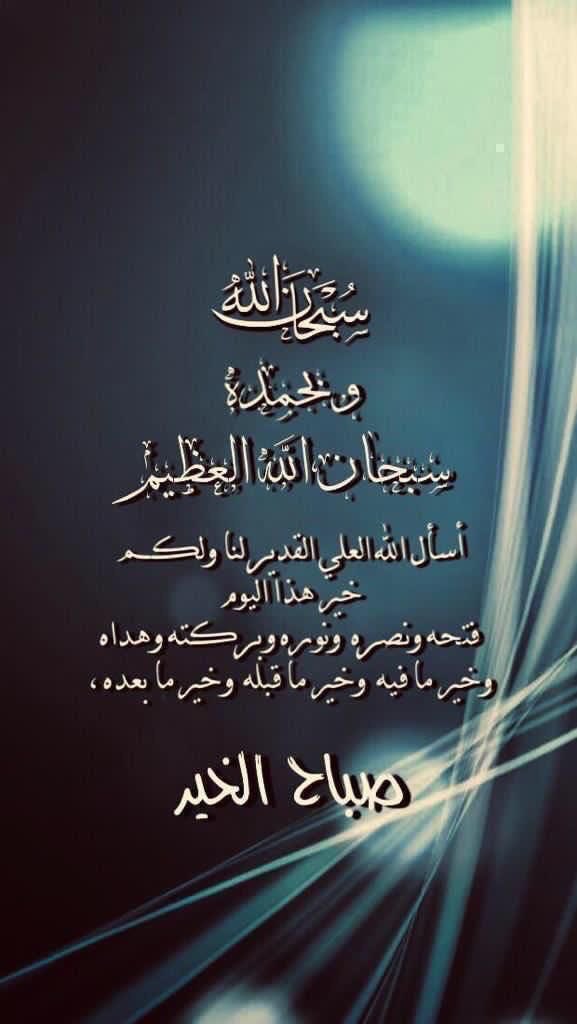 سُبْحَانَ اللهُ
وبحمِدهْ
سبحان اللَه العظيم
أسأل الله العلي القدير لنا ولكم
خير هذا اليوم
فتحه ونصره ونوره وبركته وهداه
وخير ما فيه وخير ما قبله وخير ما بعده ،
صباح الخير